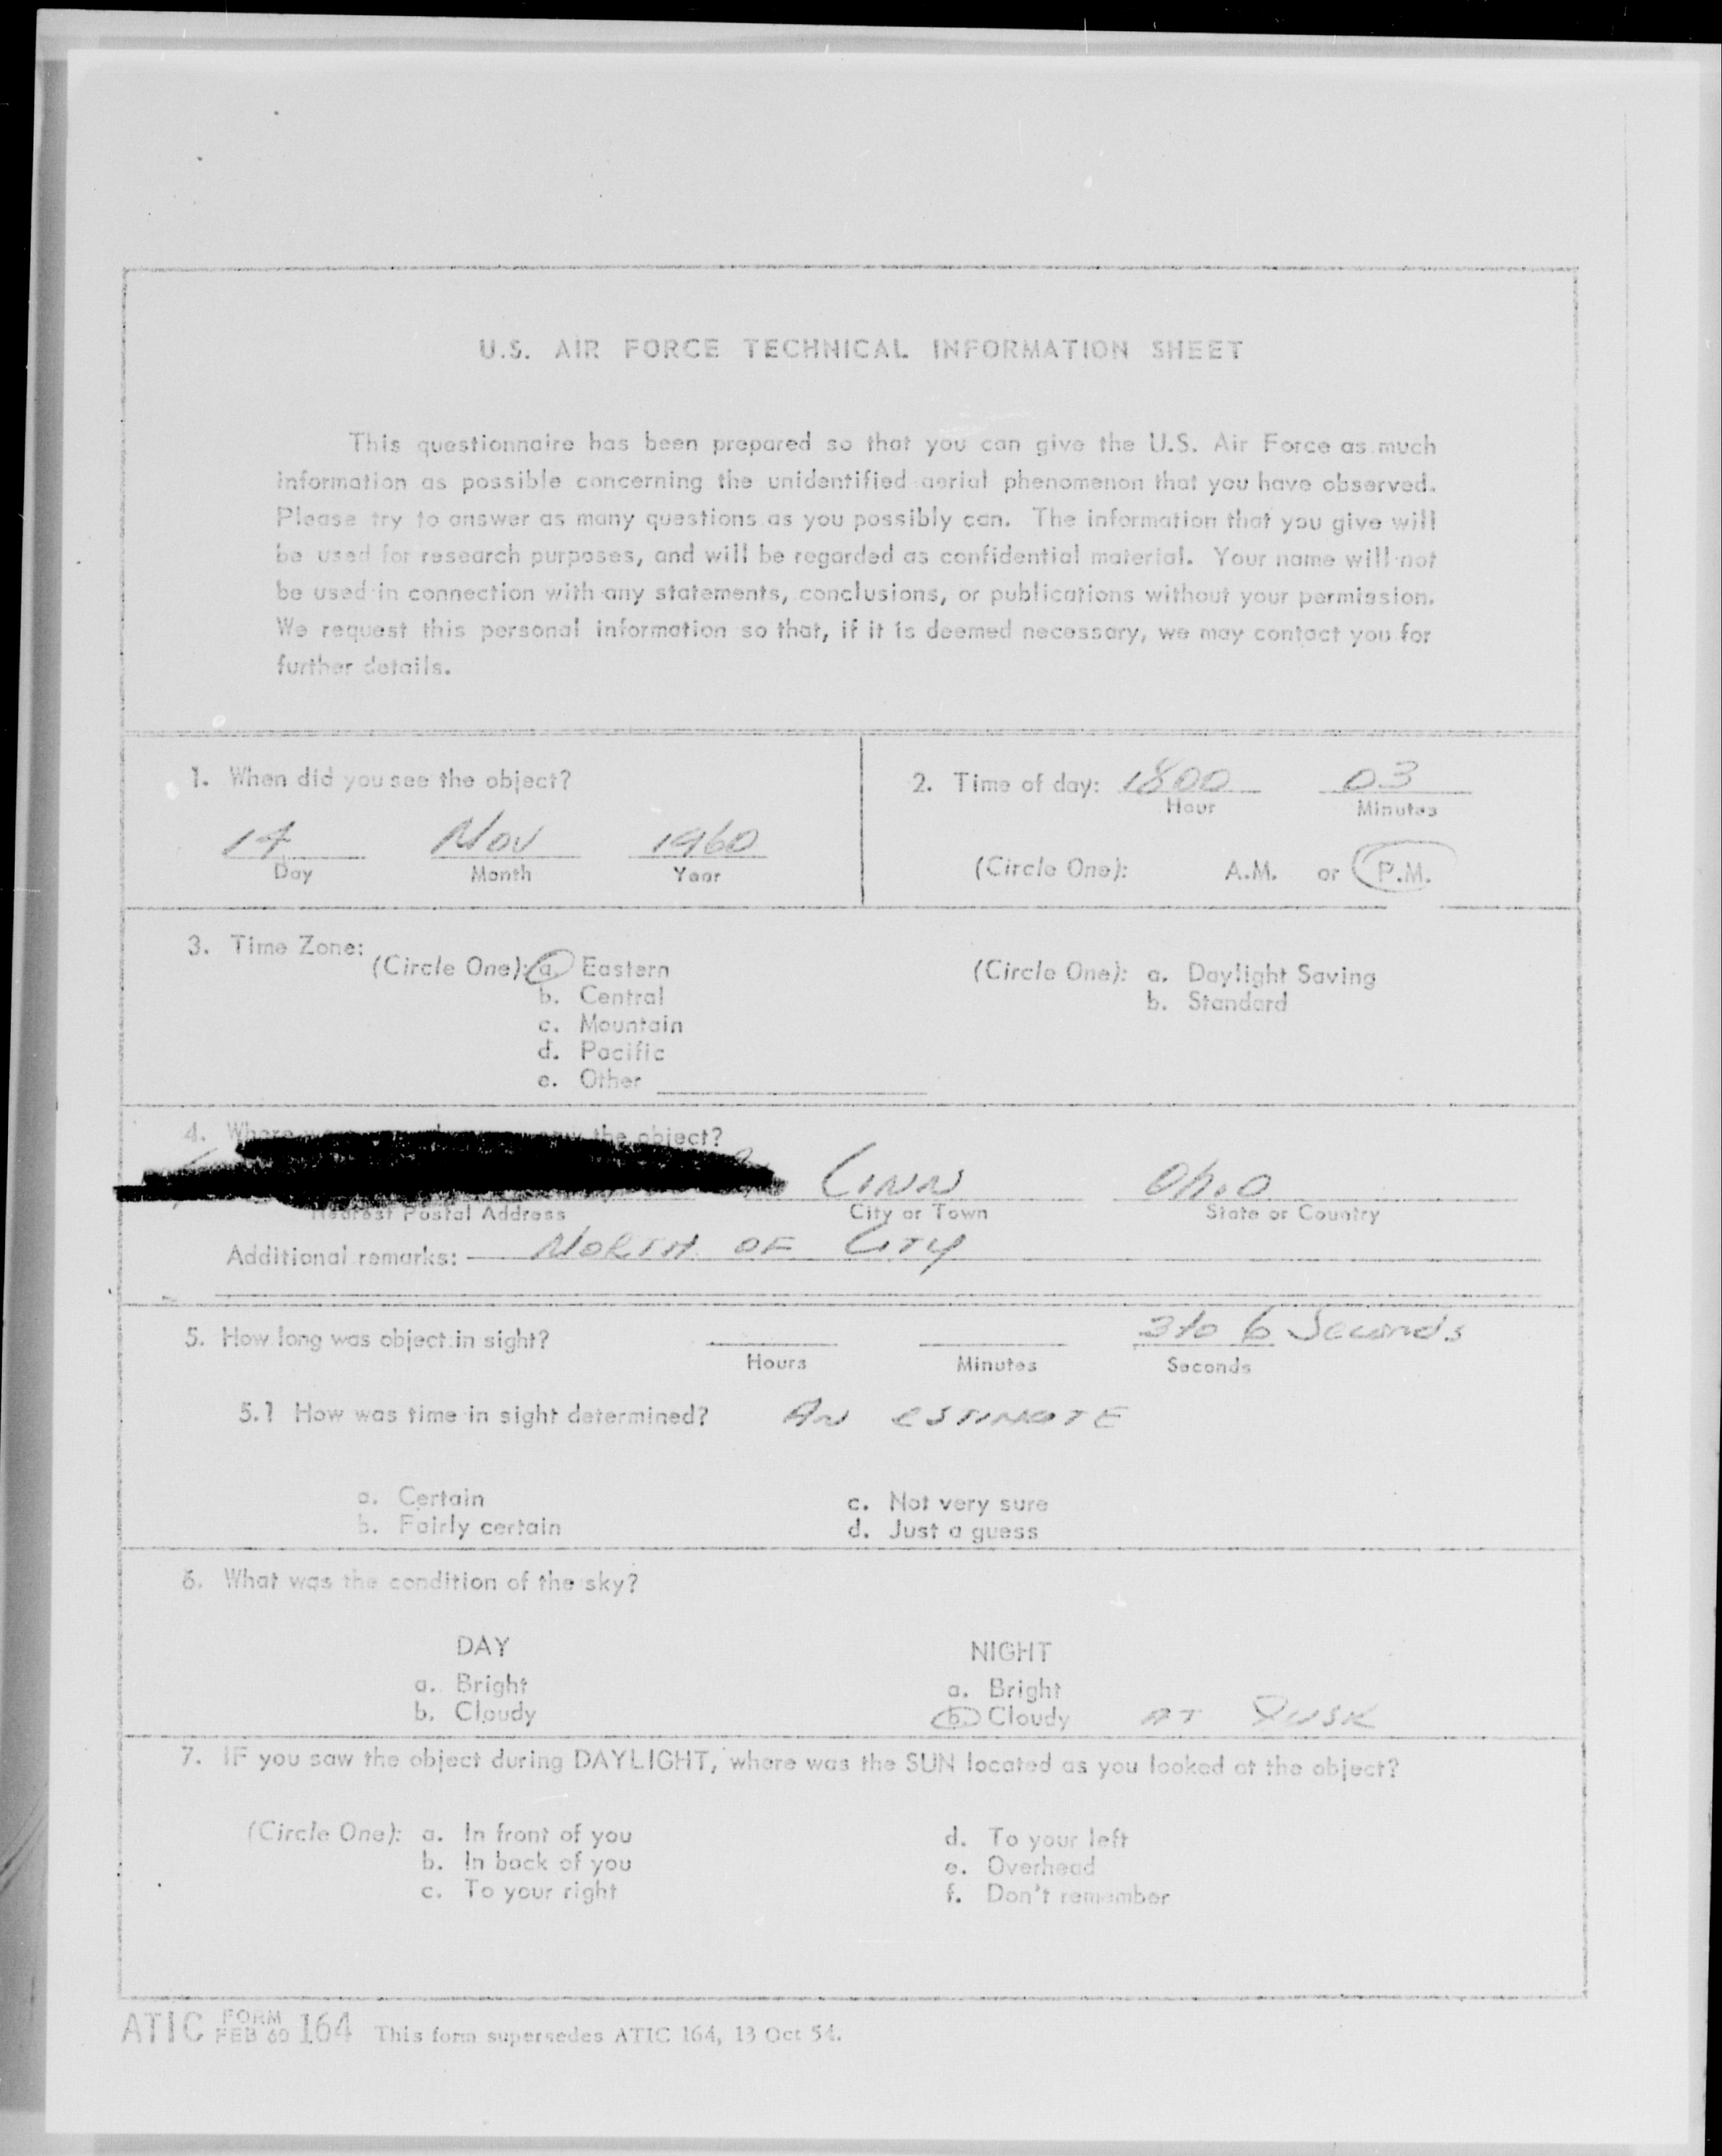 U.S. AIR FORCE TECHNICAL INFORMATION SHEET
This questionnaire has been prepared so that you can give the U.S. Air Force as much
information as possible concerning the unidentified aerial phenomenon that you have observed.
Please try to answer as many questions as you possibly can. The information that you give will
be used for research purposes, and will be regarded as confidential material. Your name will not
be used in connection with any statements, conclusions, or publications without your permission.
We request this personal information so that, if it is deemed necessary, we may contact you for
further details.
1. When did you see the object?
14 Nov 1960
Day Month Year
2. Time of day: 1800 03
Hour Minutes
(Circle One): A.M. or P.M.
3. Time Zone:
(Circle One): a. Eastern
b. Central
c. Mountain
d. Pacific
e. Other
(Circle One): a. Daylight Saving
b. Standard
4. Where the object?
Cinn Ohio
Nearest Postal Address City or Town State or Country
Additional remarks: NORTH OF CITY
5. How long was object in sight? 3 to 6 Seconds
Hours Minutes Seconds
5.1 How was time in sight determined? AN ESTIMATE
a. Certain
b. Fairly certain
c. Not very sure
d. Just a guess
6. What was the condition of the sky?
DAY
a. Bright
b. Cloudy
NIGHT
a. Bright
b. Cloudy AT DUSK
7. IF you saw the object during DAYLIGHT, where was the SUN located as you looked at the object?
(Circle One): a. In front of you
b. In back of you
c. To your right
d. To your left
e. Overhead
f. Don't remember
ATIC FORM FEB 60 164 This form supersedes ATIC 164, 13 Oct 54.